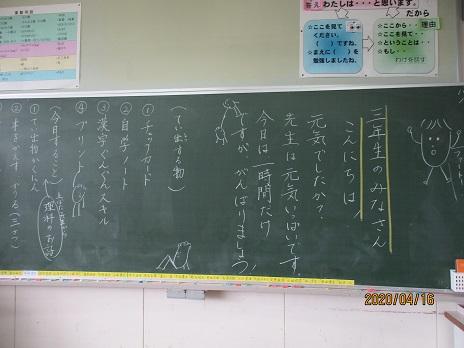 答え わたしは・・・と思います。
だから
☆ここを見て
ください。
( )ですね。
☆まえに( )を
勉強しましたね。
☆ここから・・
☆ここを見て・・
☆ということは・・
☆もし・・
理由
わけを話す
ファイト!
三年生のみなさん
こんにちは
元気でしたか?
先生は元気いっぱいです。
今日は一時間だけ
ですが、がんばりましょう
(てい出する物)
①チェックカード
②自学ノート
③漢字ぐんぐんスキル
④プリント
(今日すること)
①てい出物かくにん
理科のお話
2020/04/16